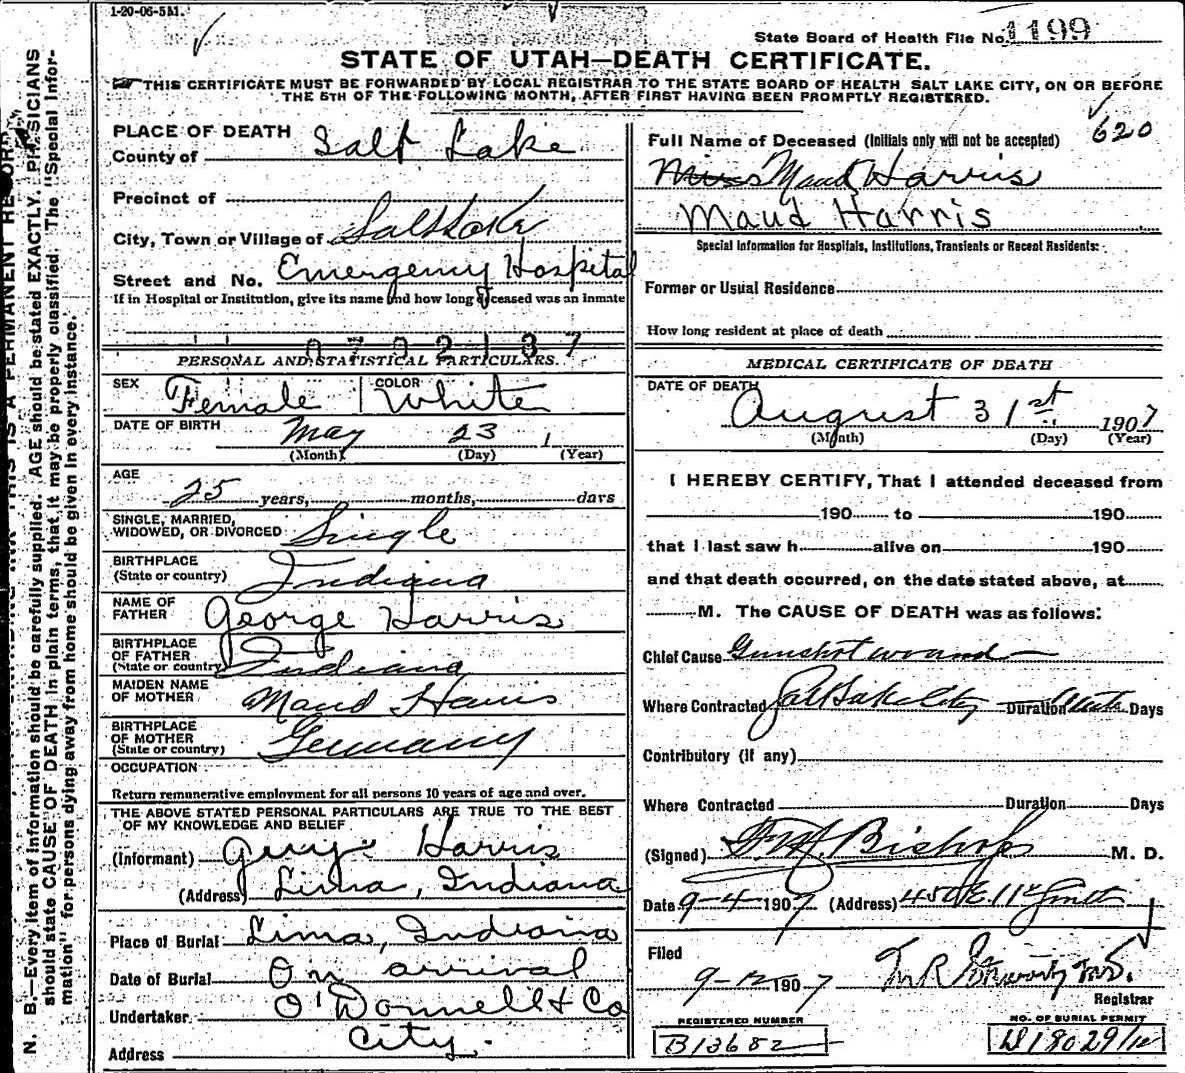 1-20-06-5M.
State Board of Health File No. 1199
STATE OF UTAH—DEATH CERTIFICATE.
THIS CERTIFICATE MUST BE FORWARDED BY LOCAL REGISTRAR TO THE STATE BOARD OF HEALTH SALT LAKE CITY, ON OR BEFORE
THE 5TH OF THE FOLLOWING MONTH, AFTER FIRST HAVING BEEN PROMPTLY REGISTERED.
N. B.—Every item of information should be carefully supplied. AGE should be stated EXACTLY. PHYSICIANS
should state CAUSE OF DEATH in plain terms, that it may be properly classified. The "Special Infor-
mation" for persons dying away from home should be given in every instance.
THIS IS A PERMANENT RECORD
PLACE OF DEATH
County of Salt Lake
Precinct of
City, Town or Village of Salt Lake
Street and No. Emergency Hospital
If in Hospital or Institution, give its name and how long deceased was an inmate
0702137
PERSONAL AND STATISTICAL PARTICULARS.
SEX Female COLOR White
DATE OF BIRTH May 23 1
(Month) (Day) (Year)
AGE
25 years, months, days
SINGLE, MARRIED,
WIDOWED, OR DIVORCED Single
BIRTHPLACE
(State or country) Indiana
NAME OF
FATHER George Harris
BIRTHPLACE
OF FATHER
(State or country) Indiana
MAIDEN NAME
OF MOTHER Maud Harris
BIRTHPLACE
OF MOTHER
(State or country) Germany
OCCUPATION
Return remunerative employment for all persons 10 years of age and over.
THE ABOVE STATED PERSONAL PARTICULARS ARE TRUE TO THE BEST
OF MY KNOWLEDGE AND BELIEF
(Informant) Harris
(Address) Lima, Indiana
Place of Burial Lima, Indiana
Date of Burial On arrival
Undertaker O'Donnell & Co
Address City.
620
Full Name of Deceased (Initials only will not be accepted)
Miss Maud Harris
Maud Harris
Special Information for Hospitals, Institutions, Transients or Recent Residents:
Former or Usual Residence
How long resident at place of death
MEDICAL CERTIFICATE OF DEATH
DATE OF DEATH
August 31st 1907
(Month) (Day) (Year)
I HEREBY CERTIFY, That I attended deceased from
190 to 190
that I last saw h alive on 190
and that death occurred, on the date stated above, at
M. The CAUSE OF DEATH was as follows:
Chief Cause Gunshot wound
Where Contracted Salt Lake City Duration Days
Contributory (if any)
Where Contracted Duration Days
(Signed) Bishop M. D.
Date 9-4-1907 (Address)
Filed
9-12-1907
Registrar
REGISTERED NUMBER
B13682
NO. OF BURIAL PERMIT